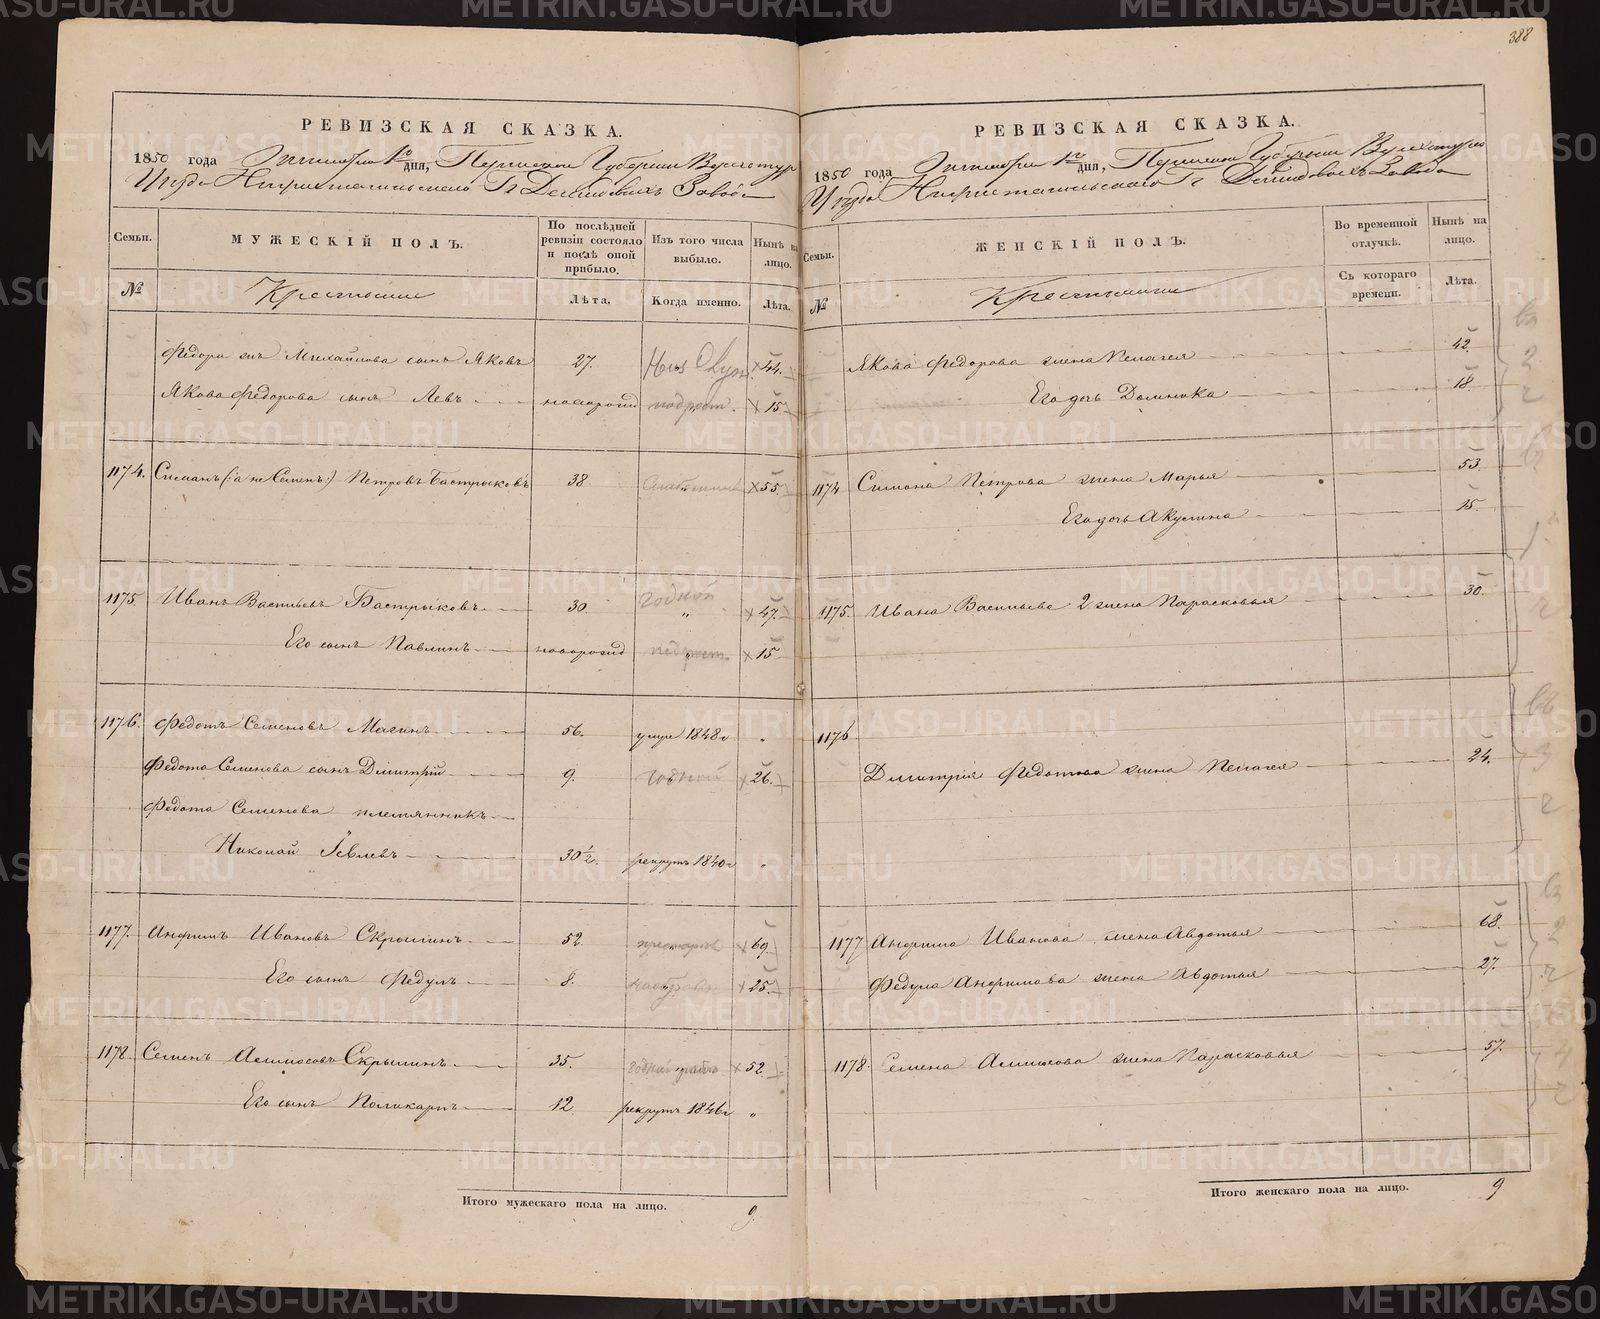 388
РЕВИЗСКАЯ СКАЗКА.
1850 года Октября 1го дня, Пермской Губернии Верхотур
Уезда Нижнетагильскаго Гг Демидовыхъ Завода
Семьи.
МУЖЕСКІЙ ПОЛЪ.
По послѣдней ревизіи состояло и послѣ оной прибыло.
Изъ того числа выбыло.
Нынѣ на лицо.
№
Крестьяне
Лѣта.
Когда именно.
Лѣта.
Федора Михайлова сынъ Яковъ 27. 44.
Якова Федорова сынъ Левъ новорожд подрост. 15
1174. Симанъ (: а не Семенъ :) Петровъ Бастрыковъ 38 55.
1175. Иванъ Васильевъ Бастрыковъ 30. годной 47.
Его сынъ Павлинъ новорожд подрост. 15
1176. Федотъ Семеновъ Мазинъ 56. умре 1848г
Федота Семенова сынъ Дмитрій 9. годной 26.
Федота Семенова племянникъ
Николай Іевлевъ 30½. рекрутъ 1840г
1177. Анфимъ Ивановъ Скроминъ 52. 69.
Его сынъ Федулъ 8. 25.
1178. Семенъ Скрыминъ 35. 52.
Его сынъ Поликарпъ 12 рекрутъ 1846г
Итого мужескаго пола на лицо. 9.
РЕВИЗСКАЯ СКАЗКА.
1850 года Октября 1го дня, Пермской Губернии Верхотурс
Уезда Нижнетагильскаго Гг Демидовыхъ Завода
Семьи.
ЖЕНСКІЙ ПОЛЪ.
Во временной отлучкѣ.
Нынѣ на лицо.
№
Крестьянки
Съ котораго времени.
Лѣта.
Якова Федорова жена Пелагея 42.
Его дочь Домника 18.
1174 Симона Петрова жена Марья 53.
Его дочь Акулина 15.
1175. Ивана Васильева 2 жена Парасковья 30.
1176
Дмитрія Федотова жена Пелагея 24.
1177 Анфима Иванова жена Авдотья 68.
Федула Анфимова жена Авдотья 27.
1178. Семена жена Парасковья 57.
Итого женскаго пола на лицо. 9
METRIKI.GASO-URAL.RU